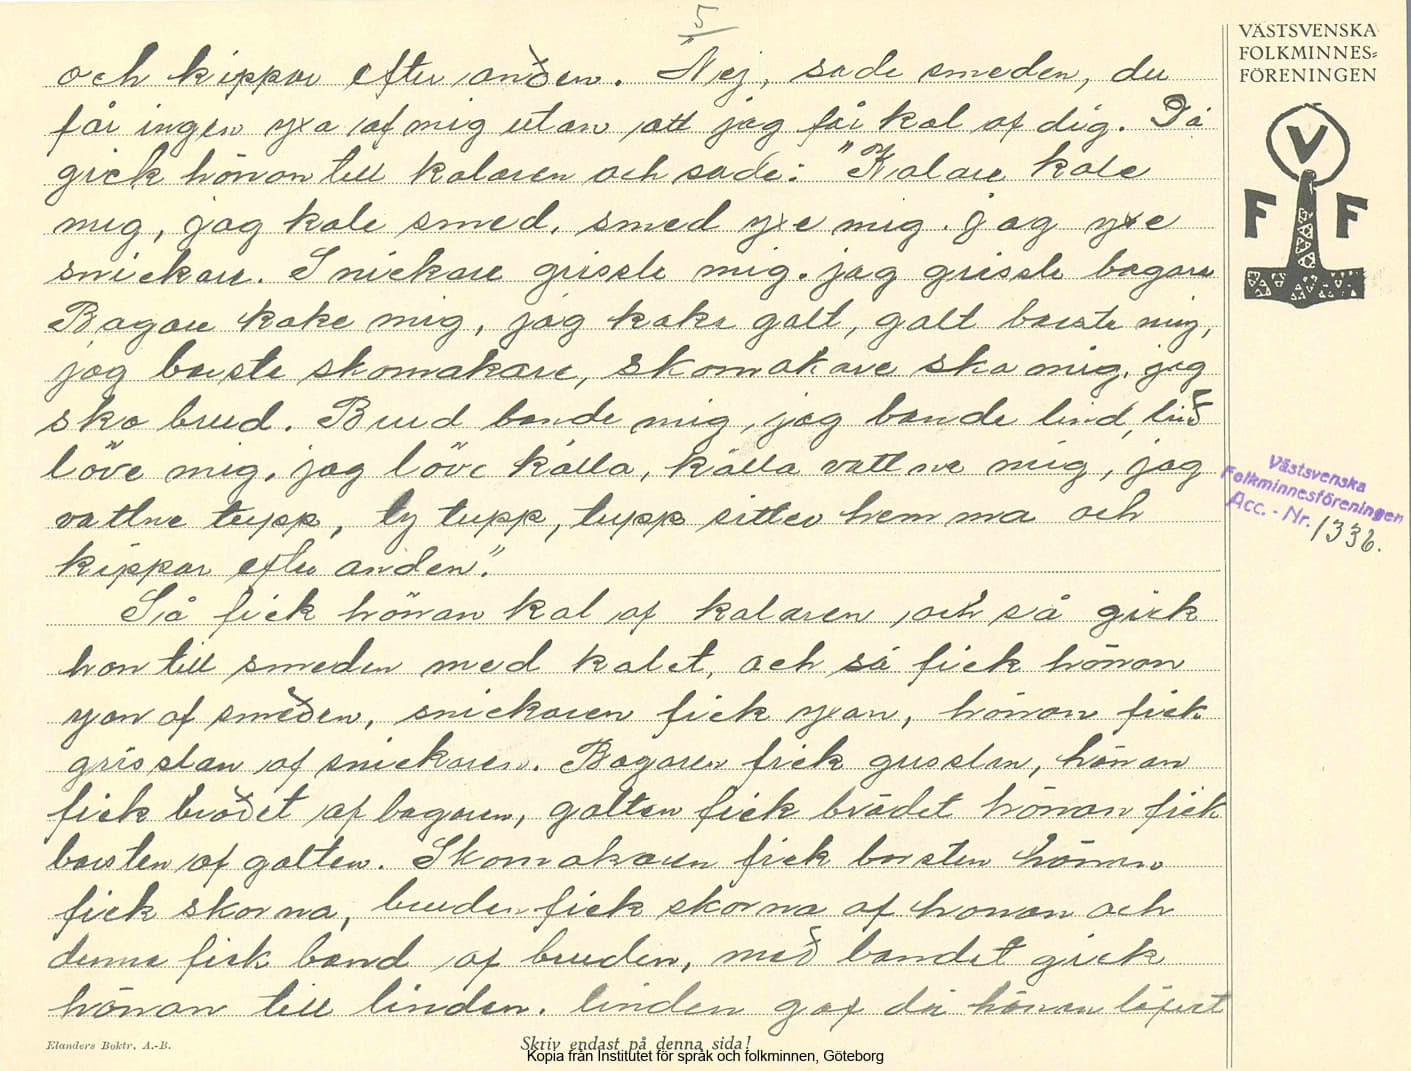 5
och kippar efter anden. "Nej, sade smeden, du
får ingen yxa af mig utan att jag får kol af dig. Då
gick hönan till kolaren och sade: "Kolare kole
mig, jag kole smed, smed yxe mig. jag yxe
snickare. Snickare grissle mig. jag grissle bagare
Bagare kake mig, jag kake galt, galt borste mig,
jag borste skomakare, skomakare sko mig, jag
sko brud. Brud bande mig, jag bande lind, lind
löve mig, jag löve källa, källa vattne mig, jag
vattne tupp, ty tupp, tupp sitter hemma och
kippar efter anden".
Så fick hönan kol af kolaren, och så gick
hon till smeden med kolet, och så fick hönan
yxan af smeden, snickaren fick yxan, hönan fick
grisslan af snickaren. Bagaren fick grisslan, hönan
fick brödet af bagaren, galten fick brödet hönan fick
borsten af galten. Skomakaren fick borsten hönan
fick skorna, bruden fick skorna af honan och
denna fick band af bruden, med bandet gick
hönan till linden. linden gaf då hönan löfvet
VÄSTSVENSKA
FOLKMINNES=
FÖRENINGEN
V
F F
Västsvenska
Folkminnesföreningen
Acc. - Nr. 1336.
Elanders Boktr. A.-B.
Skriv endast på denna sida!
Kopia från Institutet för språk och folkminnen, Göteborg